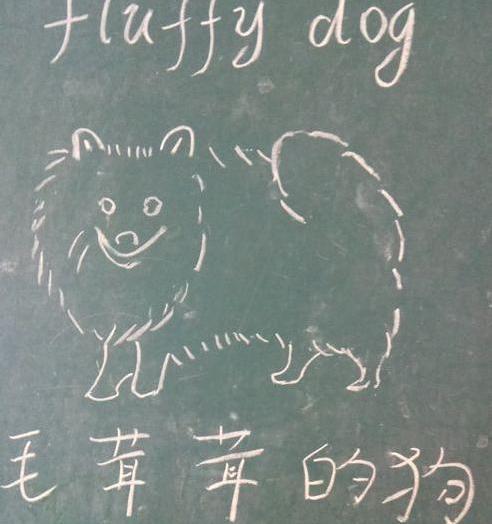 fluffy dog
毛茸茸的狗